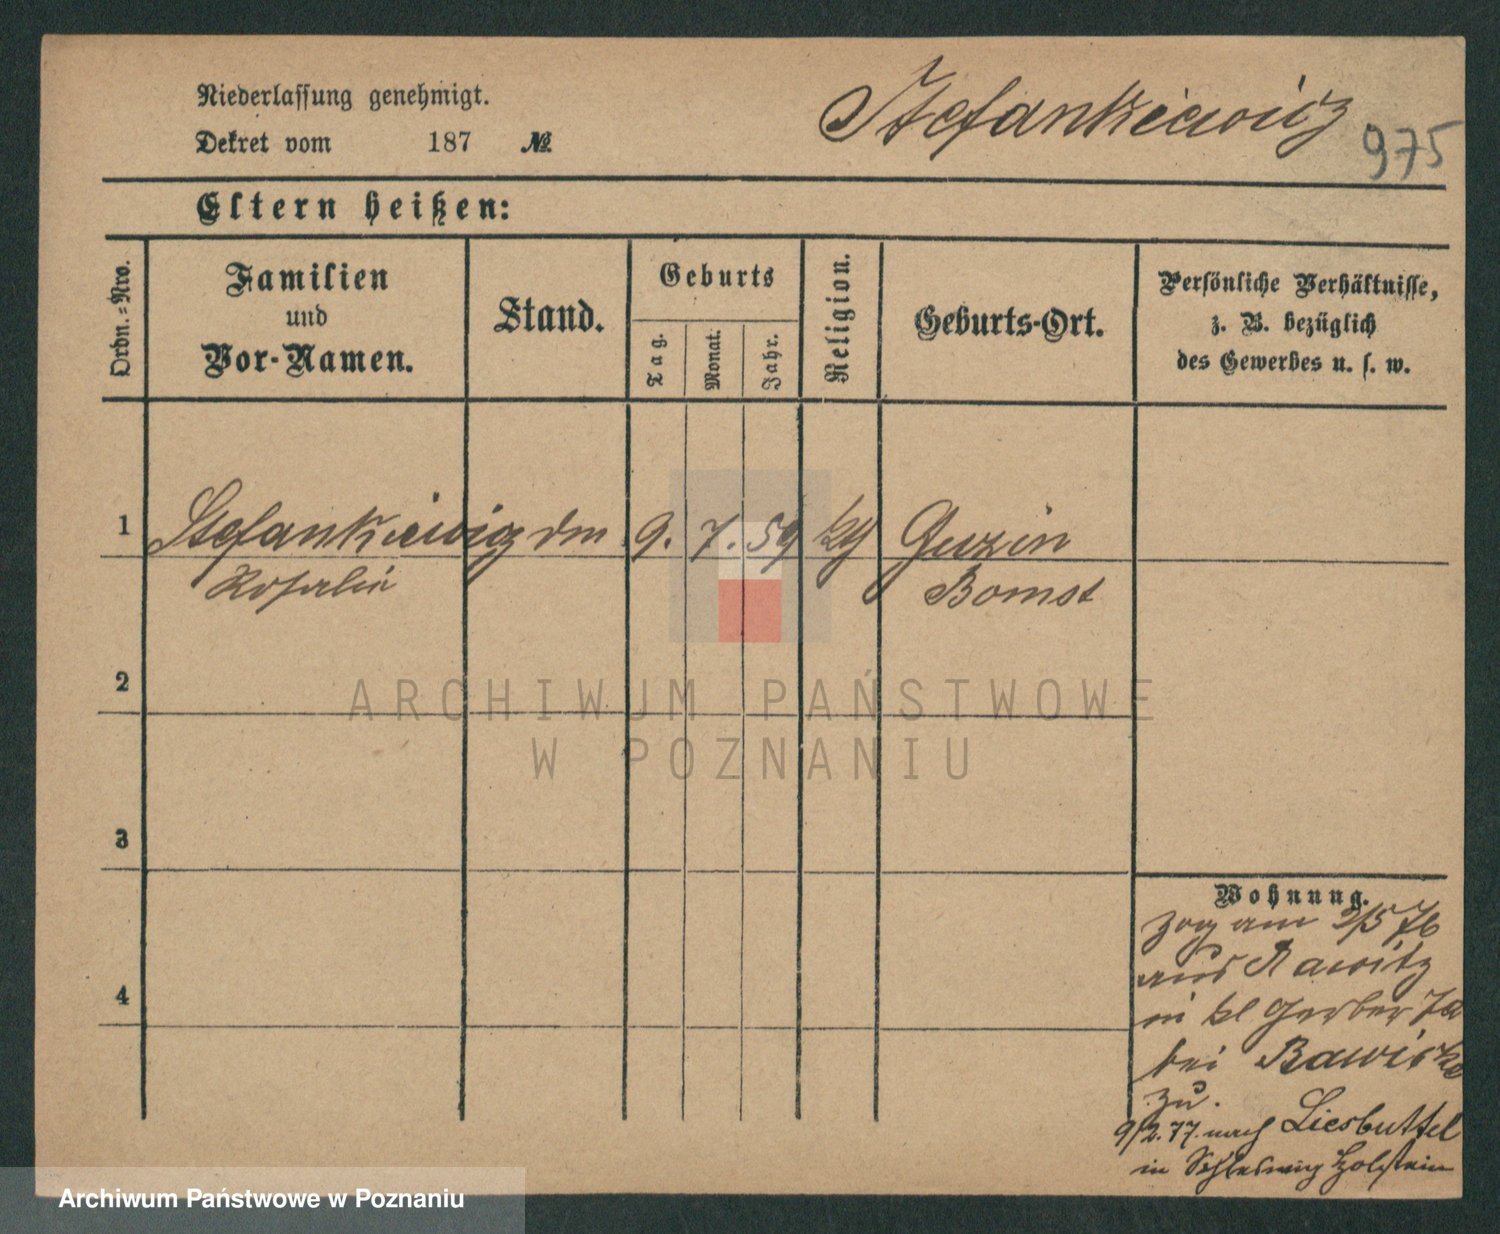 Niederlassung genehmigt.
Dekret vom 187 №
Stefankiewicz
975
Eltern heißen:
Ordn.=Nro.
Familien
und
Vor-Namen.
Stand.
Geburts
Tag.
Monat.
Jahr.
Religion.
Geburts-Ort.
Persönliche Verhältnisse,
z. B. bezüglich
des Gewerbes u. s. w.
1 Stefankiewicz 9. 7. 59
Rosalie Bomst
2
3
4
Wohnung.
zog am 2/5 76
aus Rawitz
in kl Gerber 7a
bei
zu.
9/2. 77. nach Liesbuttel
in Schleswig Holstein
ARCHIWUM PAŃSTWOWE
W POZNANIU
Archiwum Państwowe w Poznaniu